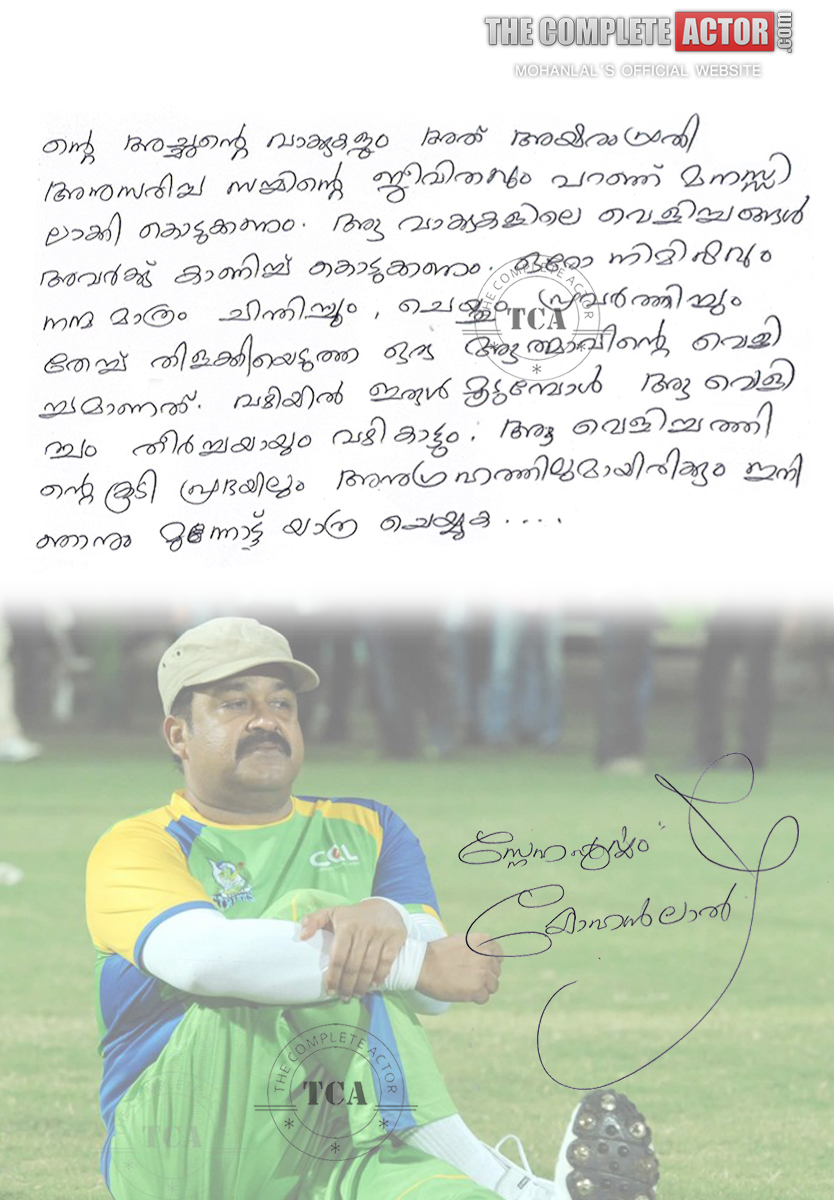 THE COMPLETE ACTOR.com
MOHANLAL'S OFFICIAL WEBSITE
ന്റെ അച്ഛന്റെ വാക്കുകളും അത്
അനുസരിച്ച സച്ചിന്റെ ജീവിതവും പറഞ്ഞ് മനസ്സി
ലാക്കി കൊടുക്കണം. ആ വാക്കുകളിലെ വെളിച്ചങ്ങൾ
അവർക്ക് കാണിച്ച് കൊടുക്കണം. ഒരോ നിമിഷവും
നന്മ മാത്രം ചിന്തിച്ചും, ചെയ്തും പ്രവർത്തിച്ചും
തേച്ച് തിളക്കിയെടുത്ത ഒരു ആത്മാവിന്റെ വെളി
ച്ചമാണത്. വഴിയിൽ ഇരുൾ മൂടുമ്പോൾ ആ വെളി
ച്ചം തീർച്ചയായും വഴി കാട്ടും. ആ വെളിച്ചത്തി
ന്റെ കൂടി പ്രഭയിലും അനുഗ്രഹത്തിലുമായിരിക്കും ഇനി
ഞാനും മുന്നോട്ട് യാത്ര ചെയ്യുക ....
THE COMPLETE ACTOR
TCA
CCL
സ്നേഹപൂർവ്വം
മോഹൻലാൽ
THE COMPLETE ACTOR
TCA
TCA